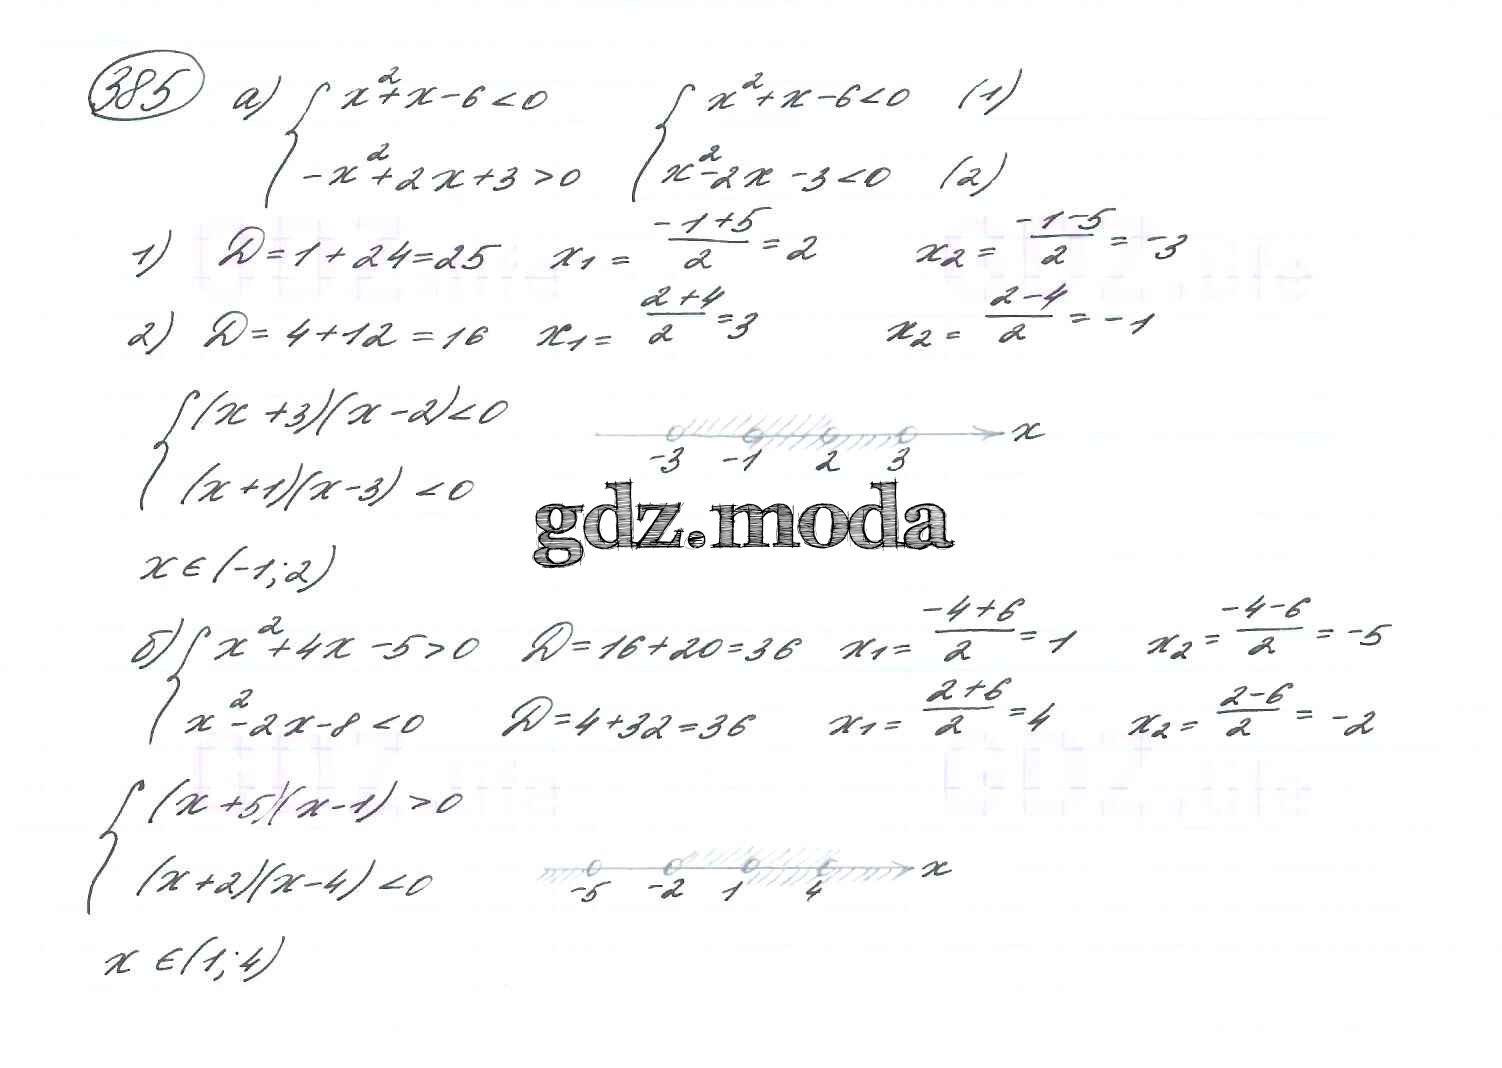 385 а) { x²+x-6<0 { x²+x-6<0 (1)
-x²+2x+3>0 x²-2x-3<0 (2)
1) D=1+24=25 x₁ = (-1+5)/2 = 2 x₂ = (-1-5)/2 = -3
2) D=4+12=16 x₁ = (2+4)/2 = 3 x₂ = (2-4)/2 = -1
{ (x+3)(x-2)<0
(x+1)(x-3)<0
-3 -1 2 3 x
gdz.moda
x∈(-1;2)
б) { x²+4x-5>0 D=16+20=36 x₁ = (-4+6)/2 = 1 x₂ = (-4-6)/2 = -5
x²-2x-8<0 D=4+32=36 x₁ = (2+6)/2 = 4 x₂ = (2-6)/2 = -2
{ (x+5)(x-1)>0
(x+2)(x-4)<0
-5 -2 1 4 x
x∈(1;4)